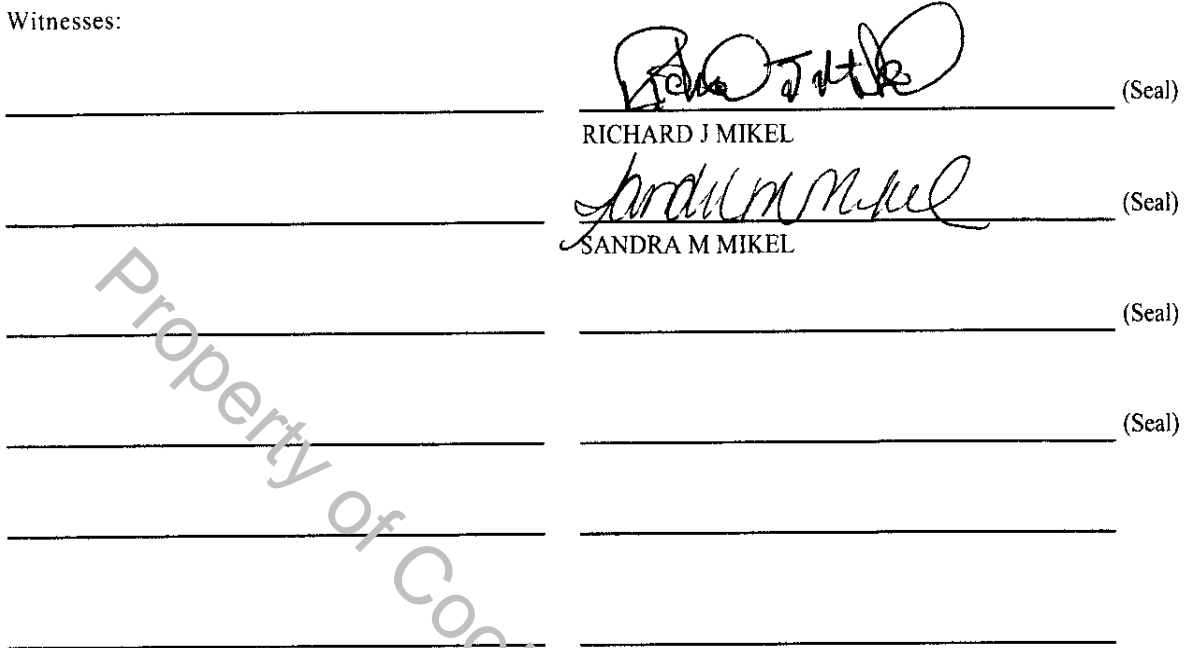 Witnesses:
Richard J Mikel (Seal)
RICHARD J MIKEL
Sandra M Mikel (Seal)
SANDRA M MIKEL
(Seal)
(Seal)
Property of Coo